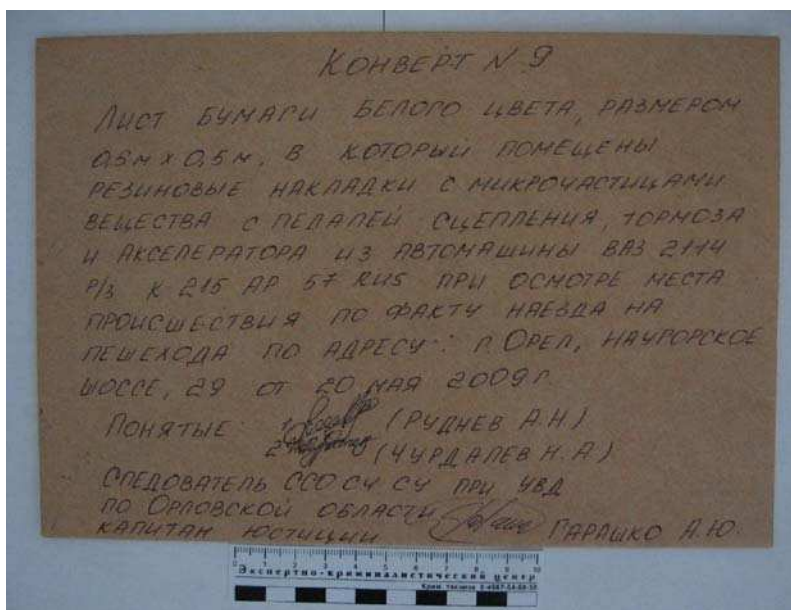 КОНВЕРТ N 9
ЛИСТ БУМАГИ БЕЛОГО ЦВЕТА, РАЗМЕРОМ
0,5м х 0,5м, В КОТОРЫЙ ПОМЕЩЕНЫ
РЕЗИНОВЫЕ НАКЛАДКИ С МИКРОЧАСТИЦАМИ
ВЕЩЕСТВА С ПЕДАЛЕЙ СЦЕПЛЕНИЯ, ТОРМОЗА
И АКСЕЛЕРАТОРА ИЗ АВТОМАШИНЫ ВАЗ 2114
Р/З К 215 АР 57 RUS ПРИ ОСМОТРЕ МЕСТА
ПРОИСШЕСТВИЯ ПО ФАКТУ НАЕЗДА НА
ПЕШЕХОДА ПО АДРЕСУ: Г. ОРЕЛ, НАУГОРСКОЕ
ШОССЕ, 29 ОТ 20 МАЯ 2009 г.
ПОНЯТЫЕ 1. (РУДНЕВ А.Н)
2. (ЧУРДАЛЕВ Н.А)
СЛЕДОВАТЕЛЬ ССО СУ СУ ПРИ УВД
ПО ОРЛОВСКОЙ ОБЛАСТИ
КАПИТАН ЮСТИЦИИ ГАРАШКО А.Ю.
0 1 2 3 4 5 6 7 8 9 10
Экспертно-криминалистический центр